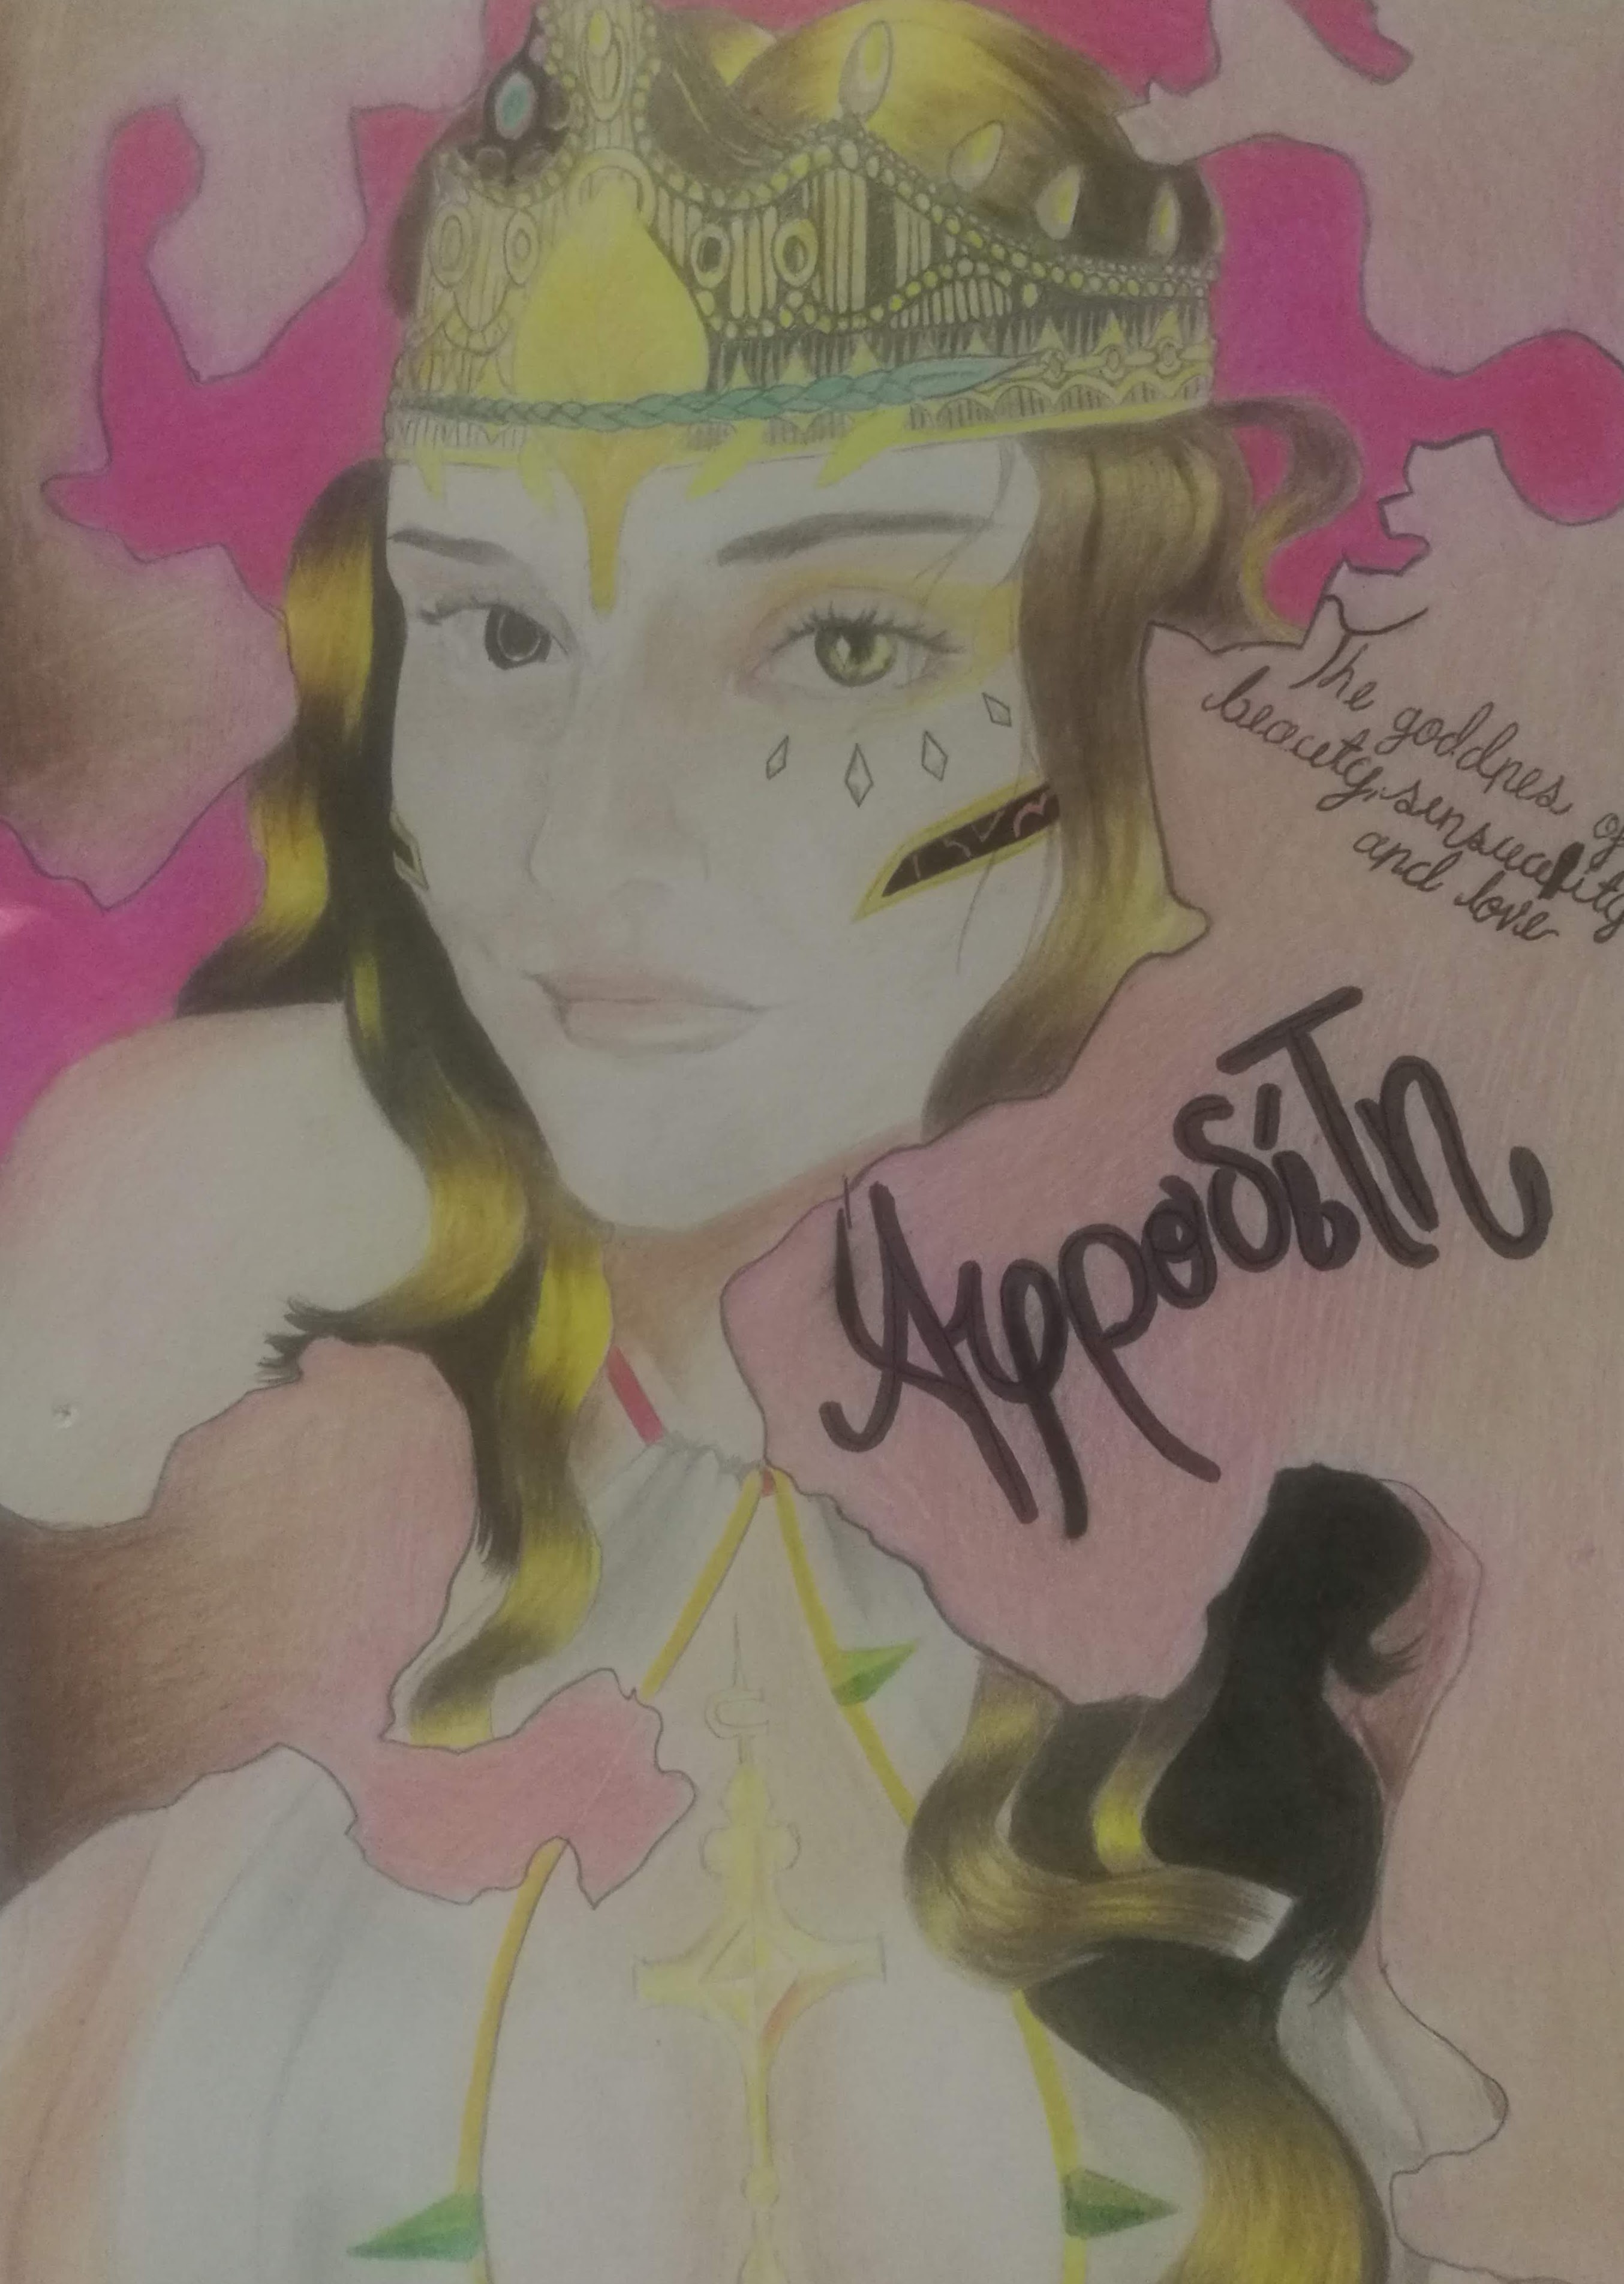 The goddnes of
beauty, sensuality
and love
ΑφροδίΤη